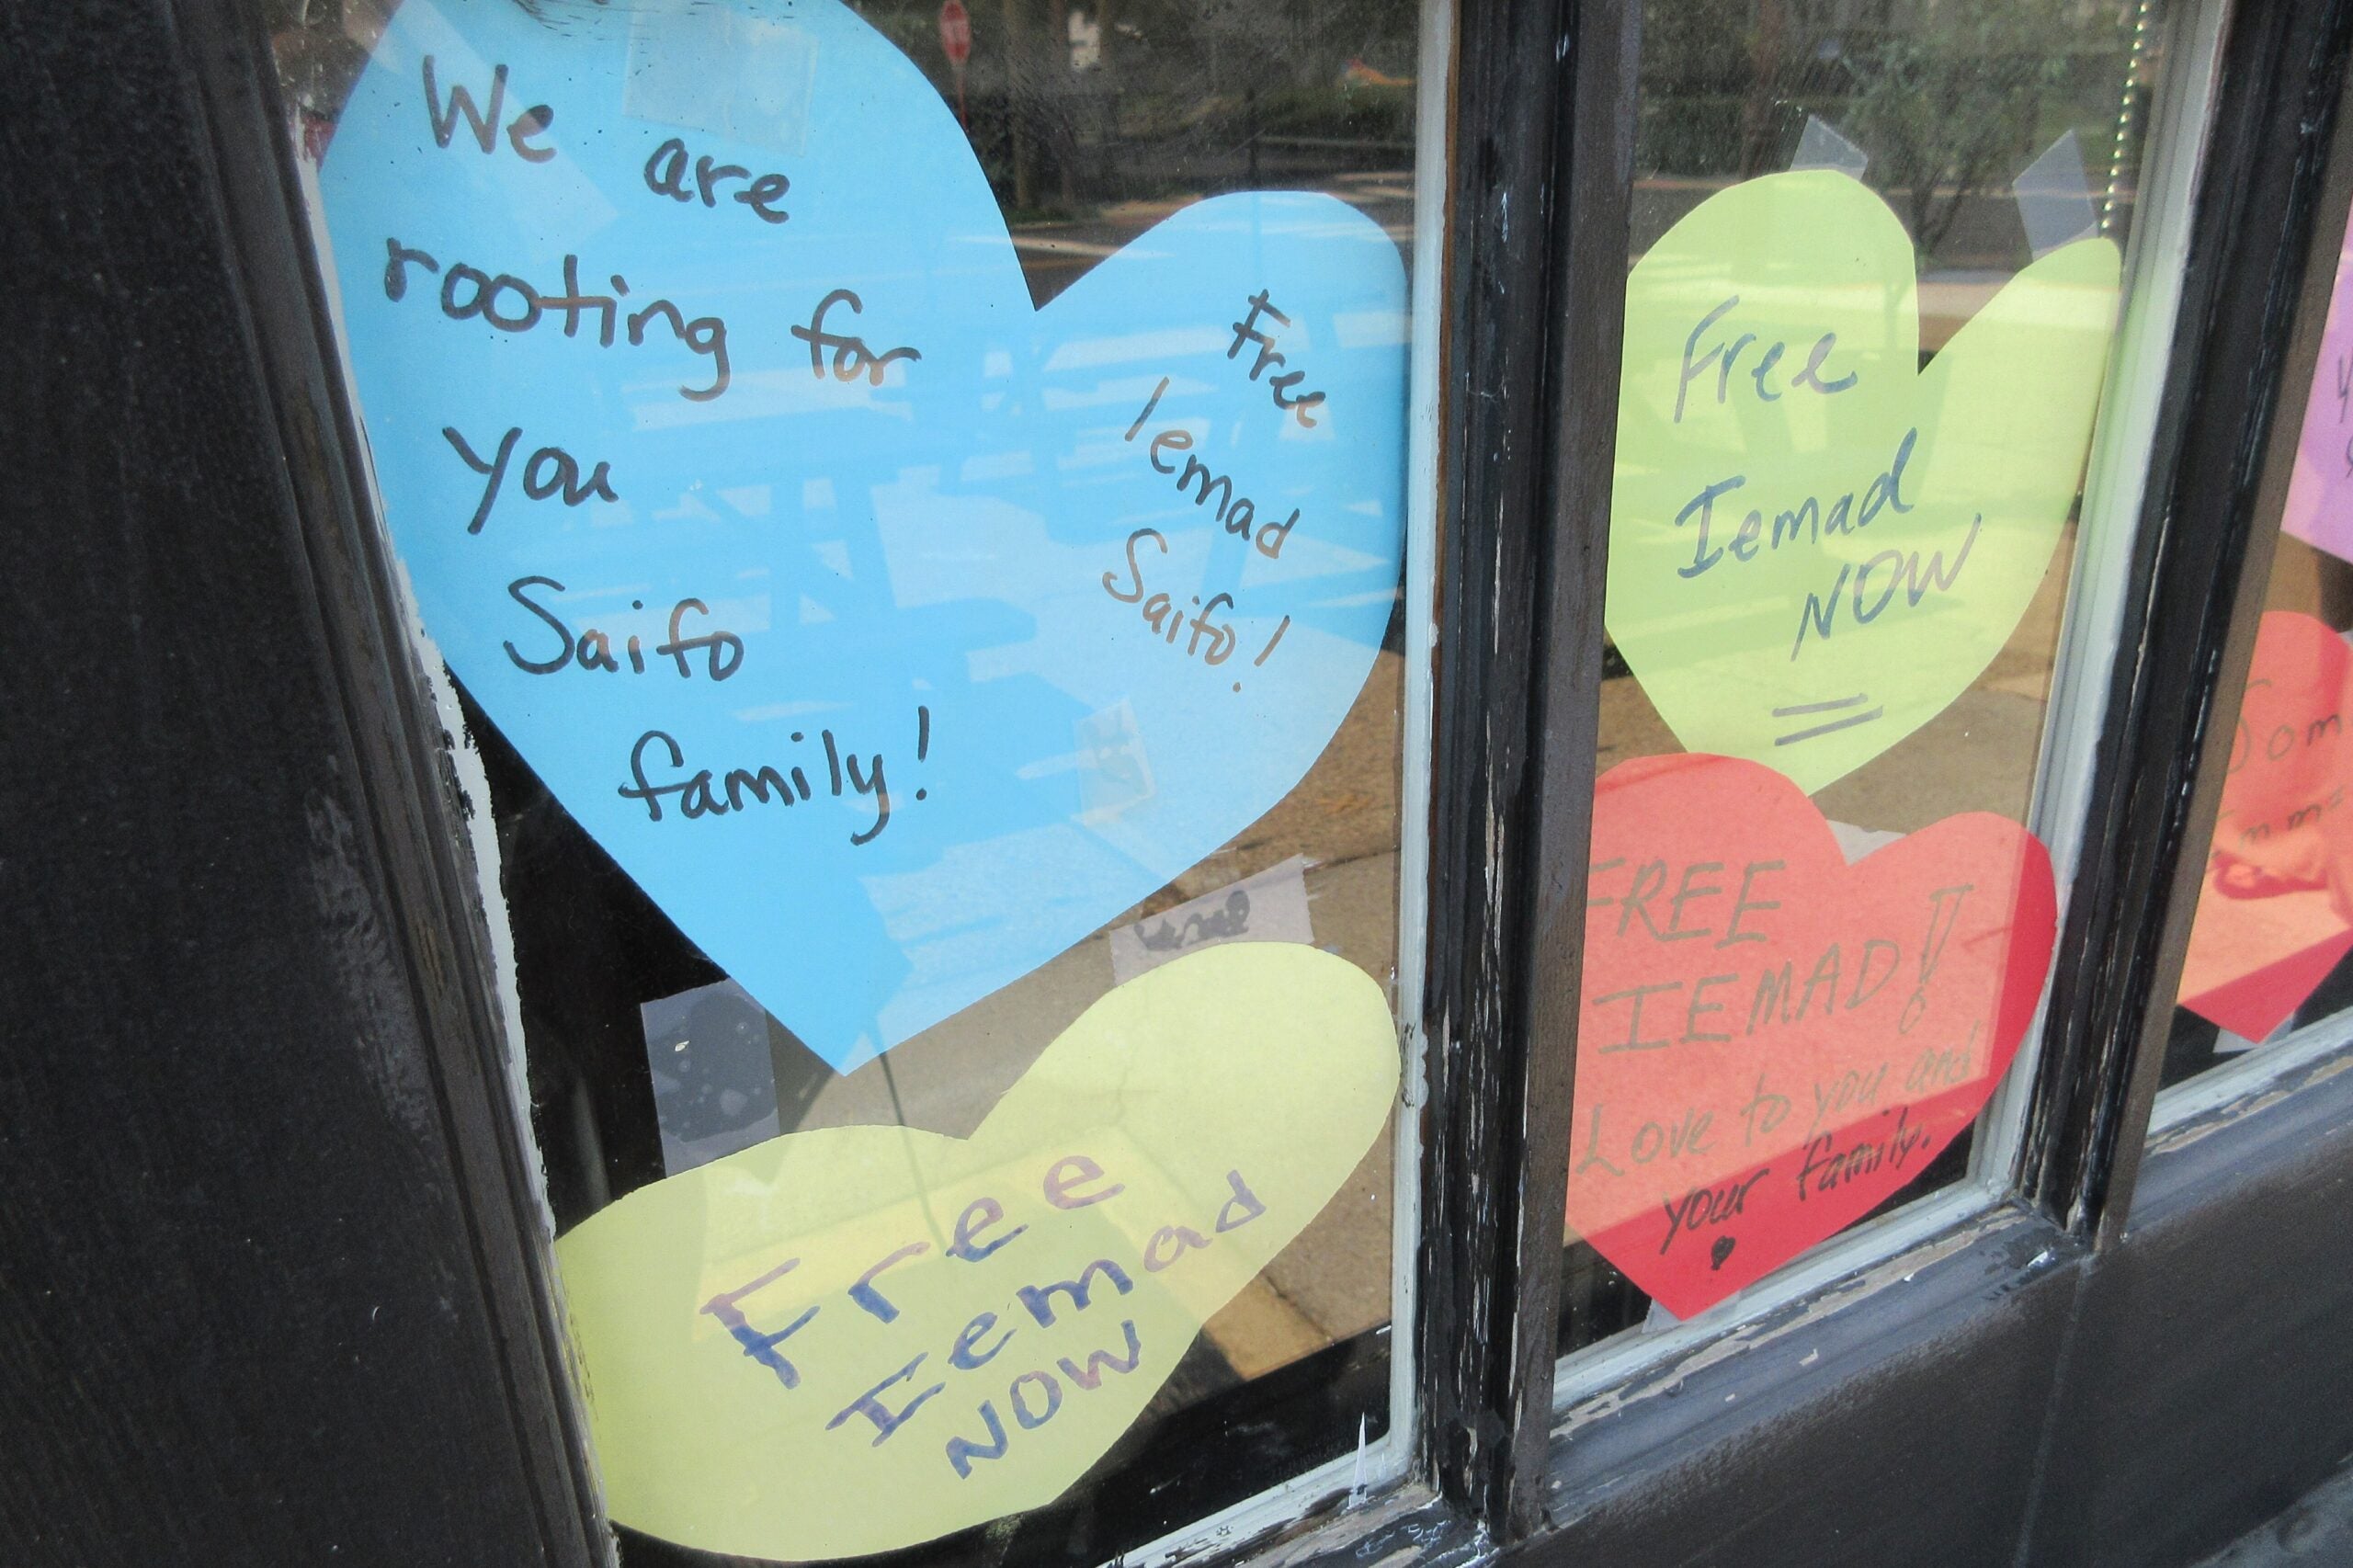 We are
rooting for
you
Saifo
family!
Free
Iemad
Saifo!
Free
Iemad
NOW
Free
Iemad
NOW
FREE
IEMAD!
Love to you and
your family.